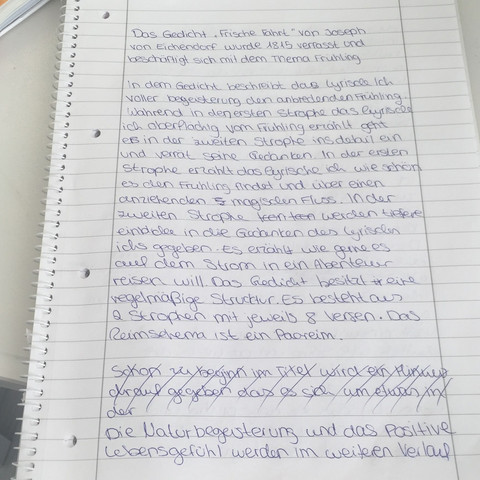 Das Gedicht „Frische Fahrt" von Joseph
von Eichendorf wurde 1815 verfasst und
beschäftigt sich mit dem Thema Frühling
in dem Gedicht beschreibt das Lyrische Ich
voller begeisterung den anbrechenden Frühling.
Während in den ersten Strophe das Lyrische
ich oberflächig vom Frühling erzählt geht
es in der zweiten Strophe ins detail ein
und verrät seine Gedanken. In der ersten
Strophe erzählt das Lyrische ich wie schön
es den Frühling findet und über einen
anziehenden magischen Fluss. In der
zweiten Strophe werden tiefere
einblicke in die Gedanken des Lyrischen
ichs gegeben. Es erzählt wie gerne es
auf dem Strom in ein Abenteuer
reisen will. Das Gedicht besitzt eine
regelmäßige Structur. Es besteht aus
2 Strophen mit jeweils 8 Versen. Das
Reimschema ist ein Paareim.
Schon zu beginn im Titel wird ein Hinweis
darauf gegeben das es sich um etwas in
der
Die Naturbegeisterung und das Positive
Lebensgefühl werden im weiteren Verlauf